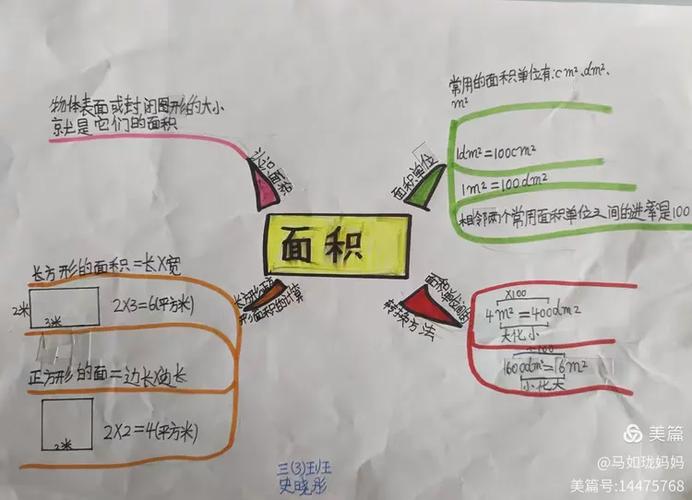 物体表面或封闭图形的大小
就是它们的面积
认识面积
常用的面积单位有:cm²、dm²、
m²
1dm²=100cm²
1m²=100dm²
相邻两个常用面积单位之间的进率是100
面积单位
面积
长方形的面积=长×宽
2米
3米
2×3=6(平方米)
正方形的面=边长×边长
2米
2×2=4(平方米)
形面积的计算
转换方法
×100
4m²=400dm²
大化小
1600dm²=16m²
小化大
三(3)班
史晓彤
美篇
@马如珑妈妈
美篇号:14475768